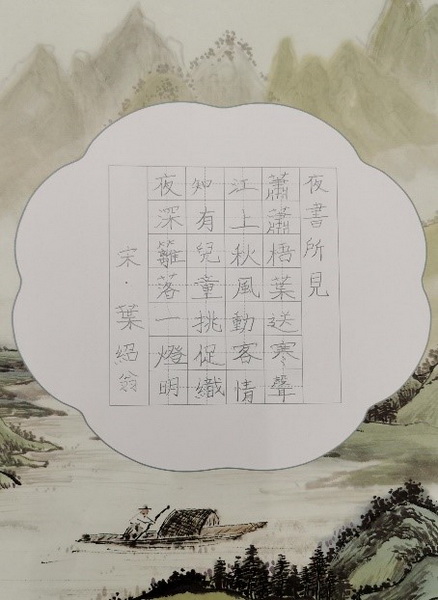 夜書所見
蕭蕭梧葉送寒聲
江上秋風動客情
知有兒童挑促織
夜深籬落一燈明
宋·葉紹翁